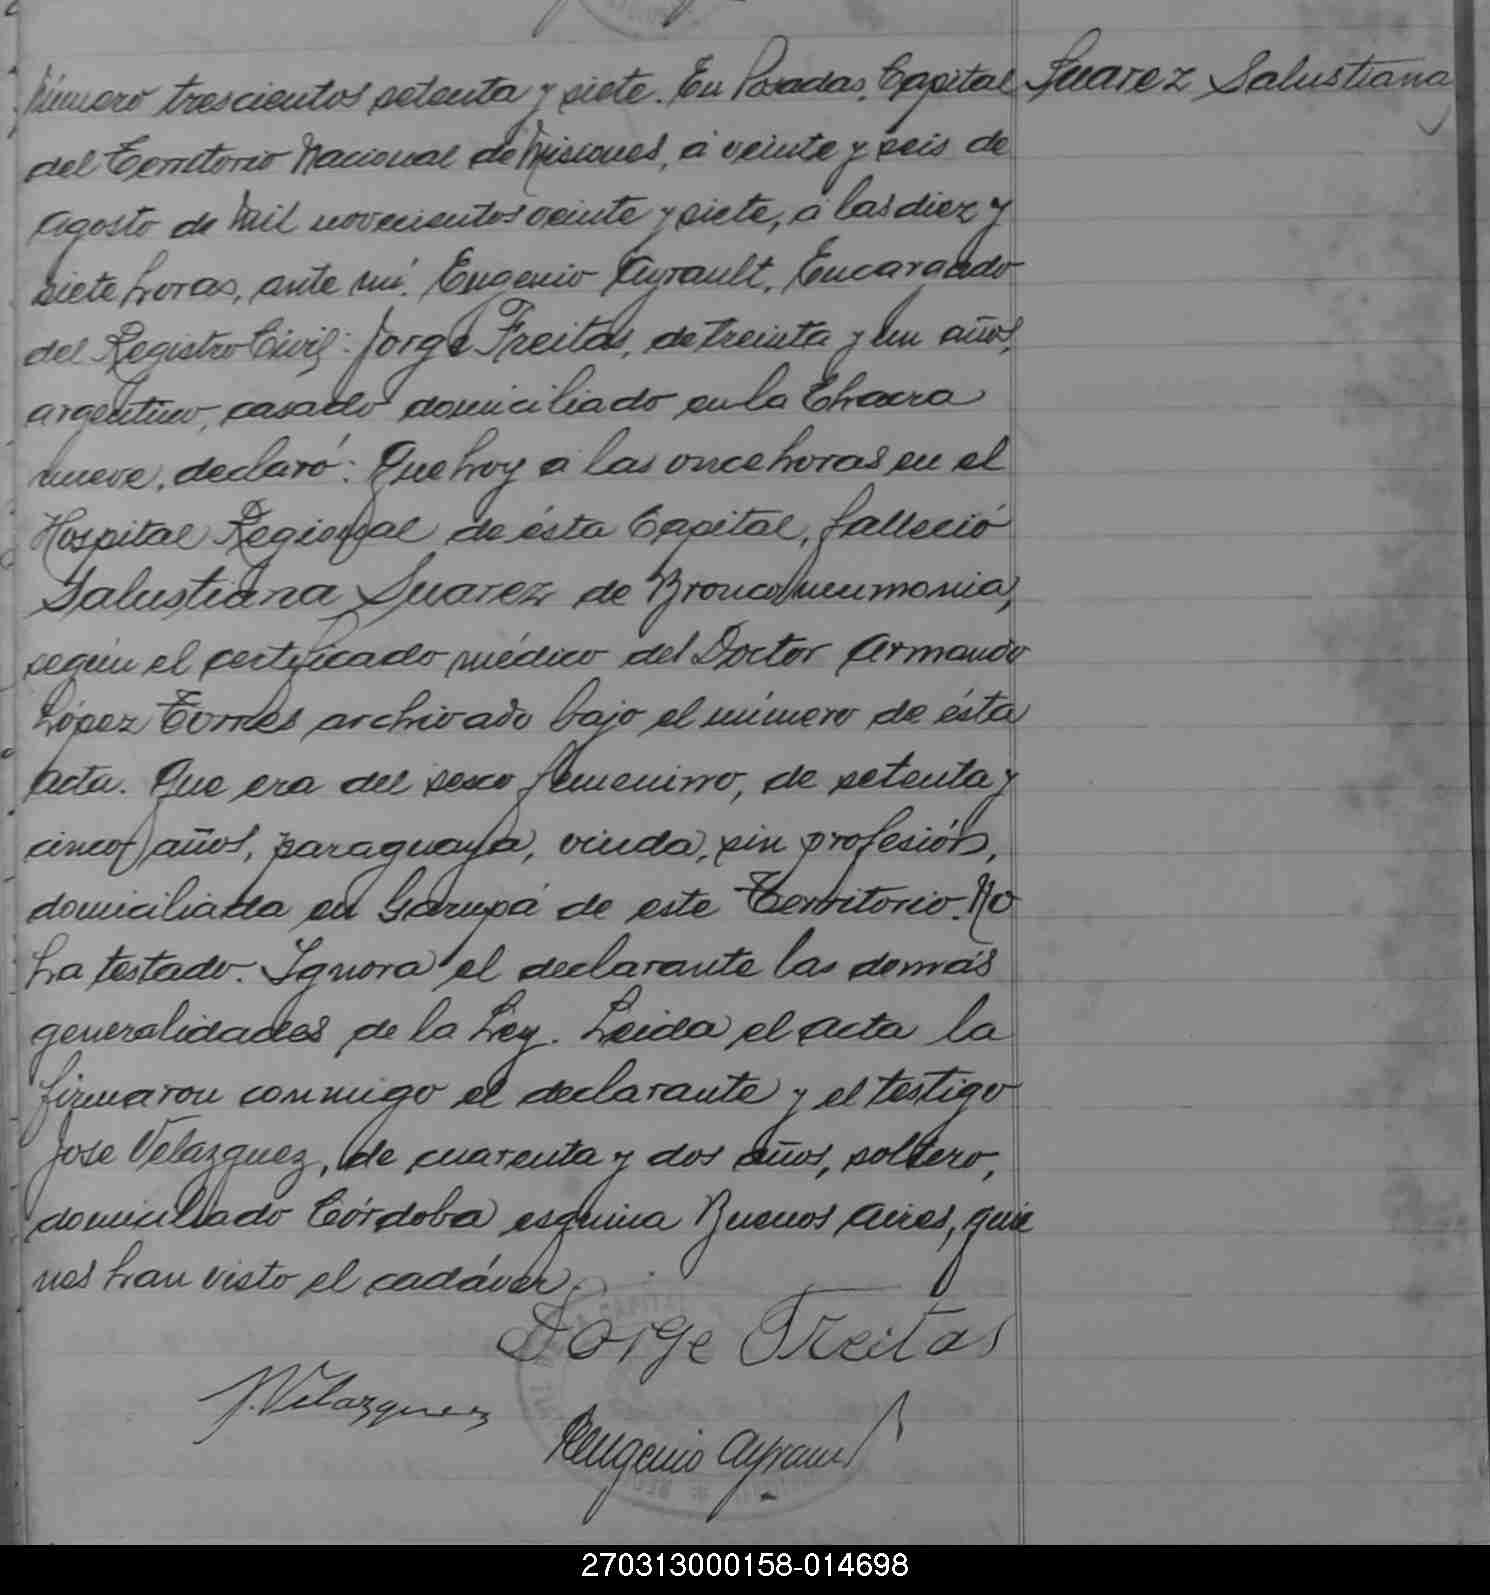 Número trescientos setenta y siete. En Posadas, Capital
Suarez Salustiana
del Territorio Nacional de Misiones, á veinte y seis de
Agosto de mil novecientos veinte y siete, á las diez y
siete horas, ante mí: Eugenio Ayrault, Encargado
del Registro Civil: Jorge Freitas, de treinta y un años,
argentino, casado domiciliado en la Chacra
nueve, declaró: Que hoy a las once horas en el
Hospital Regional de ésta Capital, falleció
Salustiana Suarez de Bronconeumonia,
según el certificado médico del Doctor Armando
López Torres archivado bajo el número de ésta
acta. Que era del sexo femenino, de setenta y
cinco años, paraguaya, viuda, sin profesión,
domiciliada en Garupá de este Territorio. No
ha testado. Ignora el declarante las demás
generalidades de la Ley. Leida el acta la
firmaron conmigo el declarante y el testigo
Jose Velazquez, de cuarenta y dos años, soltero,
domiciliado Córdoba esquina Buenos Aires, quie
nes han visto el cadáver.
Jorge Freitas
J. Velazquez
Eugenio Ayrault
270313000158-014698